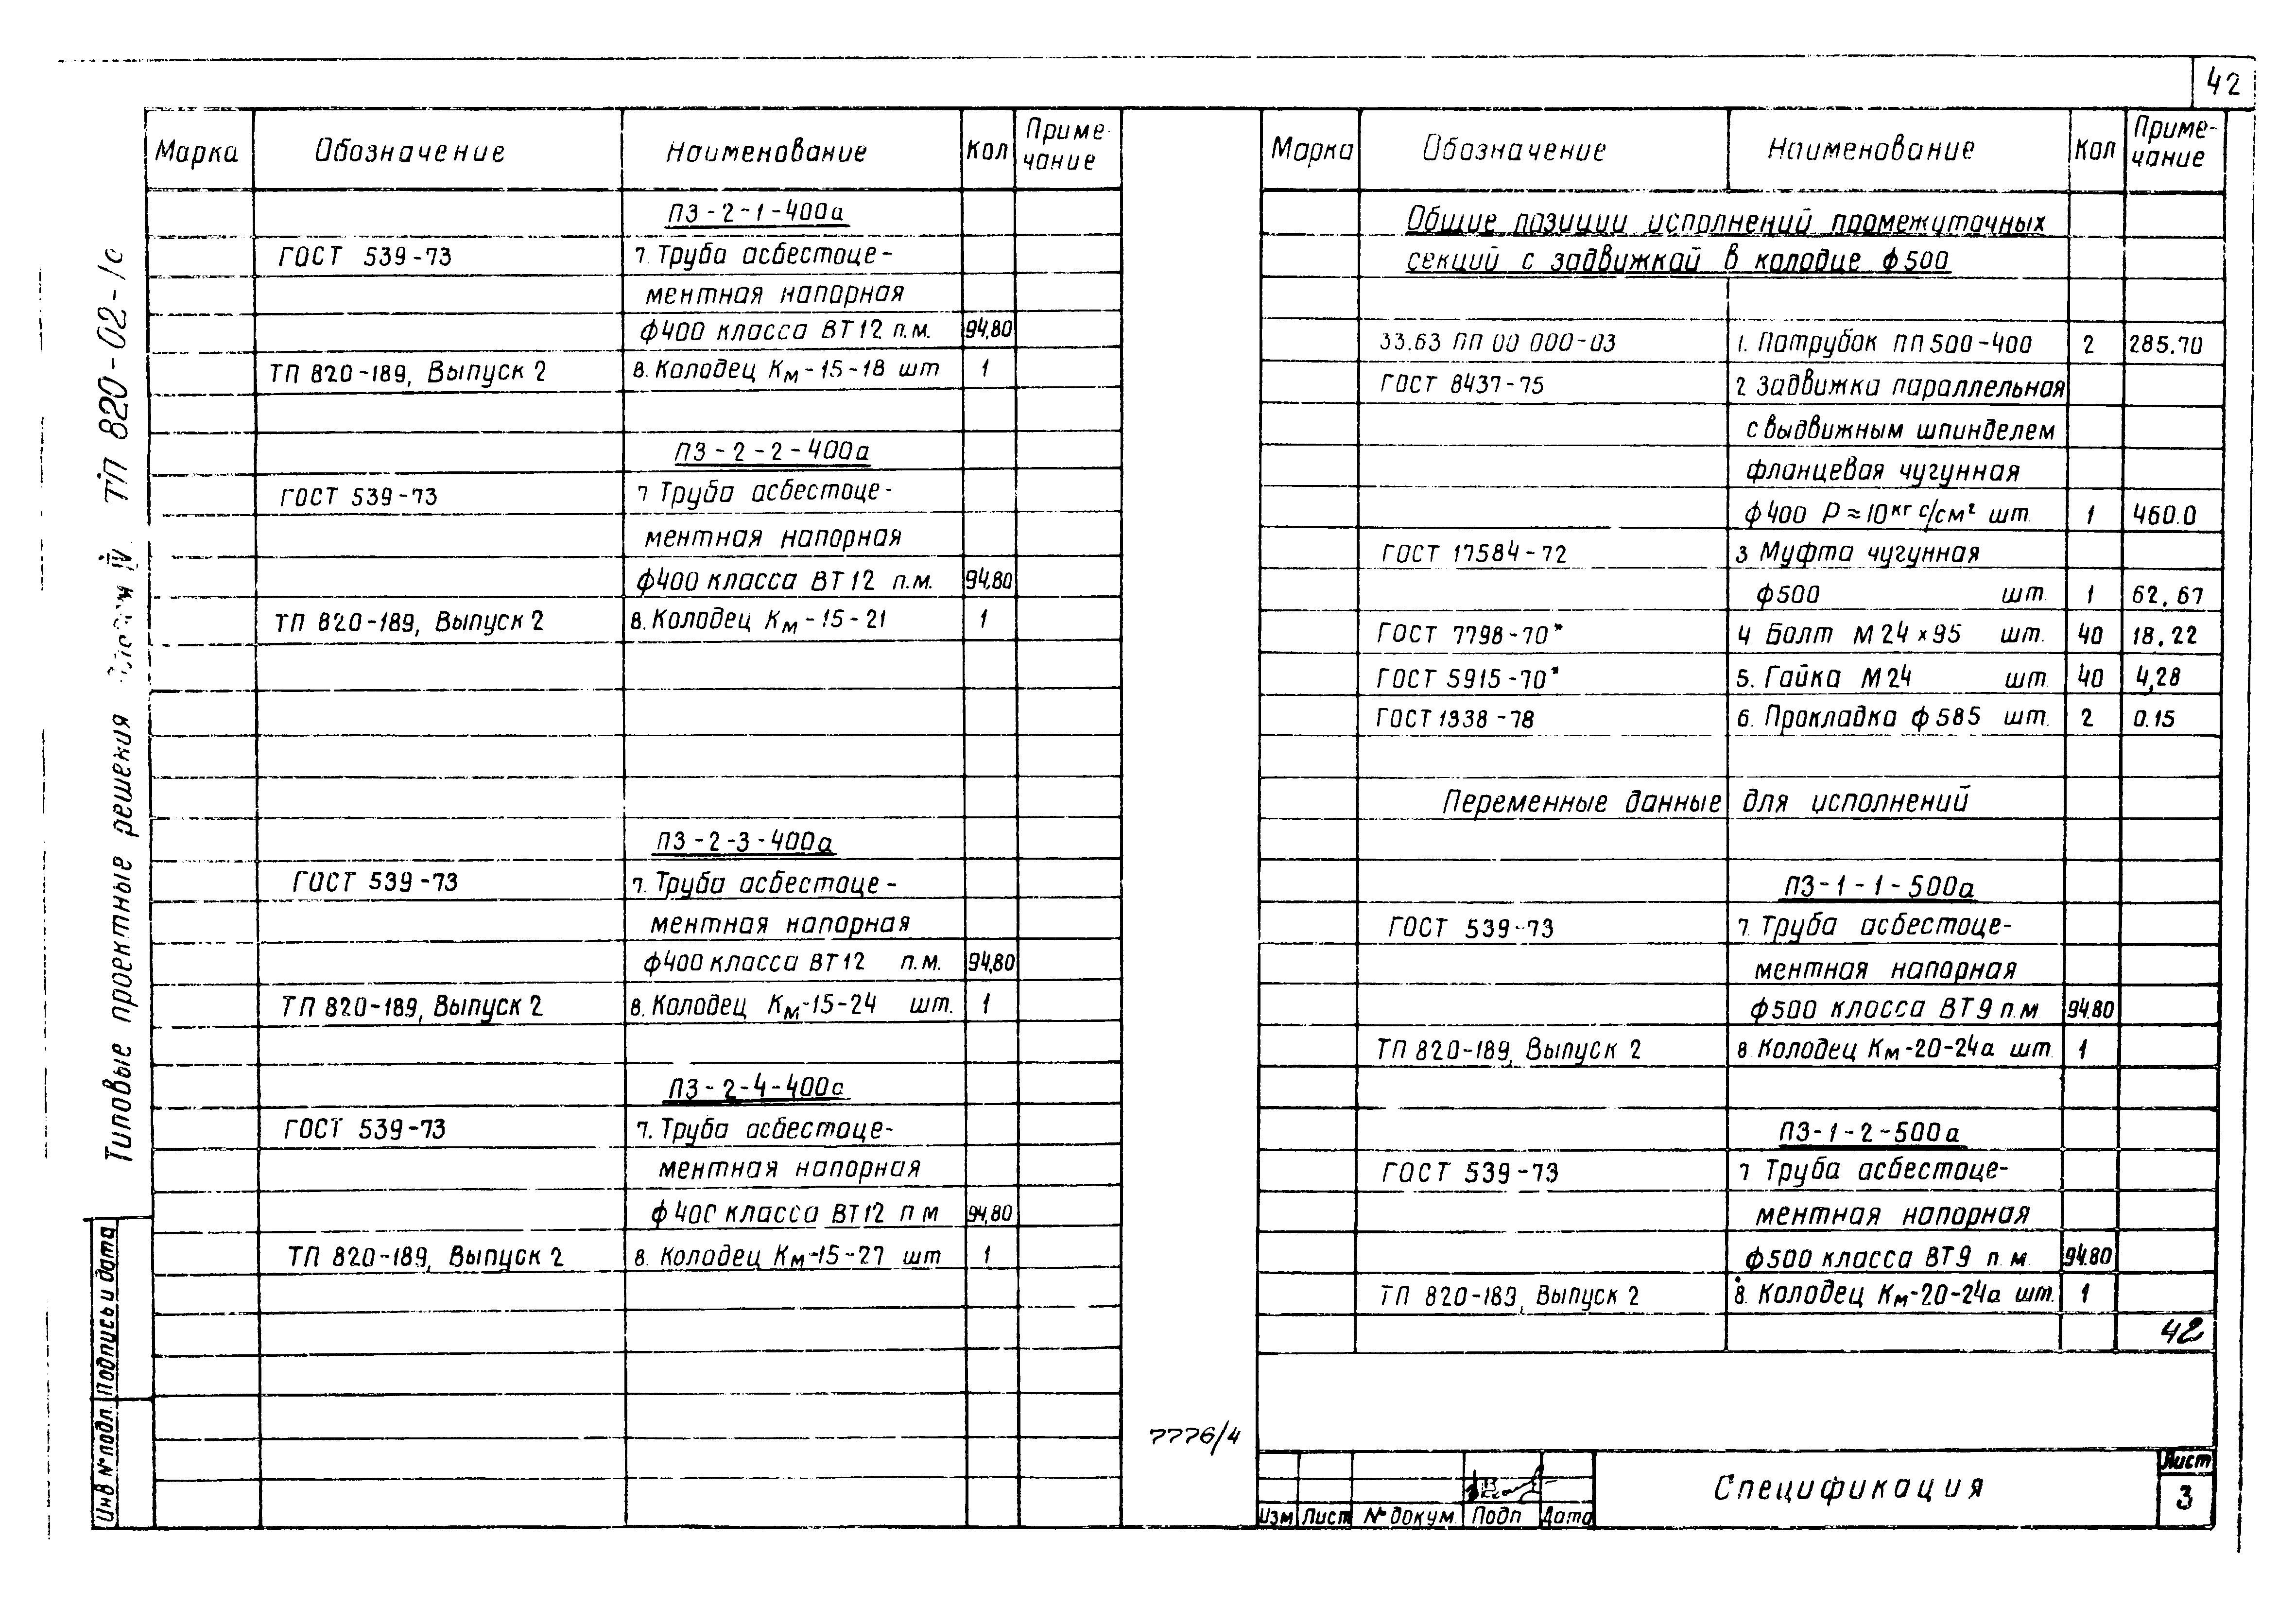 42
Марка Обозначение Наименование Кол Приме-
чание
ПЗ-2-1-400а
ГОСТ 539-73 7. Труба асбестоце-
ментная напорная
ф400 класса ВТ12 п.м. 94,80
ТП 820-189, Выпуск 2 8. Колодец Км-15-18 шт 1
ПЗ-2-2-400а
ГОСТ 539-73 7 Труба асбестоце-
ментная напорная
ф400 класса ВТ12 п.м. 94,80
ТП 820-189, Выпуск 2 8. Колодец Км-15-21 1
ПЗ-2-3-400а
ГОСТ 539-73 7. Труба асбестоце-
ментная напорная
ф400 класса ВТ12 п.м. 94,80
ТП 820-189, Выпуск 2 8. Колодец Км-15-24 шт. 1
ПЗ-2-4-400а
ГОСТ 539-73 7. Труба асбестоце-
ментная напорная
ф400 класса ВТ12 п м 94,80
ТП 820-189, Выпуск 2 8. Колодец Км-15-27 шт 1
Марка Обозначение Наименование Кол Приме-
чание
Общие позиции исполнений промежуточных
секций с задвижкой в колодце ф500
33.63 ПП 00 000-03 1. Патрубок ПП500-400 2 285.70
ГОСТ 8437-75 2 Задвижка параллельная
с выдвижным шпинделем
фланцевая чугунная
ф400 Р≈10кгс/см² шт. 1 460.0
ГОСТ 17584-72 3 Муфта чугунная
ф500 шт. 1 62,67
ГОСТ 7798-70* 4 Болт М24×95 шт. 40 18.22
ГОСТ 5915-70* 5. Гайка М24 шт. 40 4,28
ГОСТ 1338-78 6. Прокладка ф585 шт. 2 0.15
Переменные данные для исполнений
ПЗ-1-1-500а
ГОСТ 539-73 7. Труба асбестоце-
ментная напорная
ф500 класса ВТ9 п.м 94.80
ТП 820-189, Выпуск 2 8. Колодец Км-20-24а шт. 1
ПЗ-1-2-500а
ГОСТ 539-73 7 Труба асбестоце-
ментная напорная
ф500 класса ВТ9 п м. 94.80
ТП 820-189, Выпуск 2 8. Колодец Км-20-24а шт. 1
42
Типовые проектные решения IV ТП 820-02-1с
Инв № подл. Подпись и дата
7776/4
Изм Лист № докум. Подп Дата
Спецификация
Лист
3